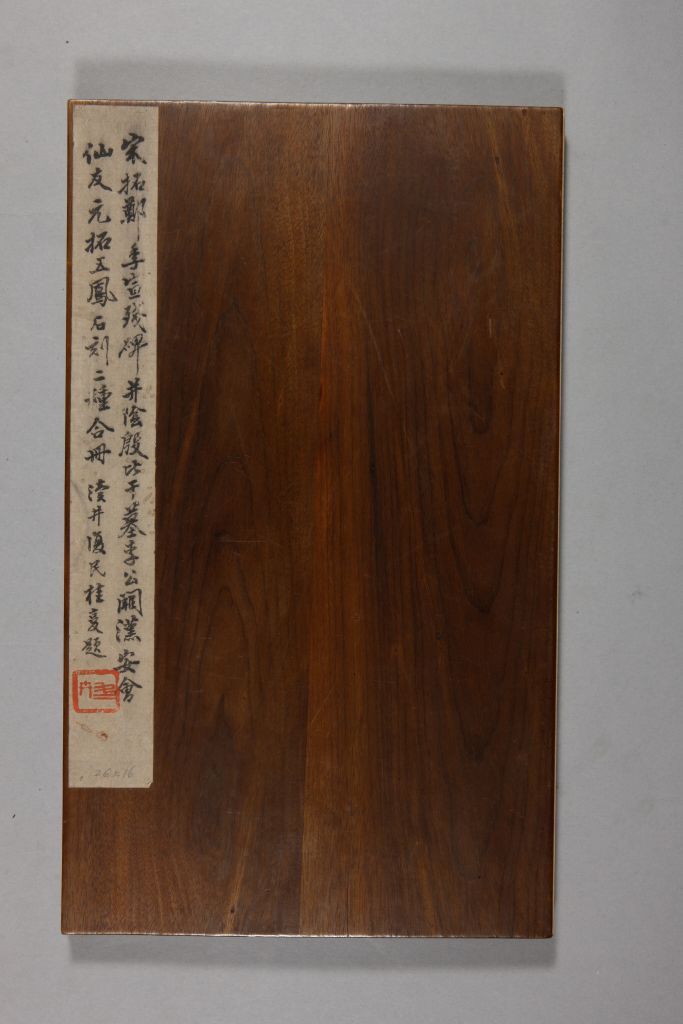 宋拓鄭季宣殘碑并陰殷比干墓李公闕漢安會
仙友元拓五鳳石刻二種合冊 後井復民桂夏題
26x16